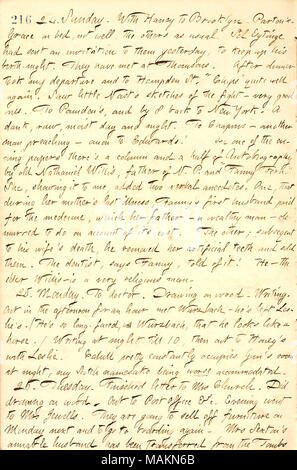 216 24. Sunday. With Haney to Brooklyn. Parton's.
Grace in bed, not well, the others as usual. Sol Eytinge
had sent an invitation to them yesterday, to keep up his
birth-night. They have met at Thomson's. After dinner
took my departure and to Hampden St. "Chips" quite well
again. Saw little Nast's sketches of the fight — very good
ones. To Ramsden's, and by 8 back to New York. A
dank, raw, moist day and night. To Chapin's — another
man preaching — anon to Edwards'. In one of the
evening papers there's a column and a half of Autobiography
by old Nathaniel Willis, father of N. P. and Fanny Fern.
She, showing it to me, added two verbal anecdotes. One, that
during her mother's last illness Fanny's first husband paid
for the medicine, which her father — a wealthy man — de-
murred to do on account of its cost. The other; subsequent
to his wife's death, he removed her artificial teeth and sold
them. The dentist, says Fanny, told of it! He — the
elder Willis — is a very religious man.
25. Monday. To doctor. Drawing on wood. Writing.
Out in the afternoon for an hour met Wurzbach — he's left Les-
lie's. He's so long-faced, is Wurzbach, that he looks like a
horse. Writing at night till 10, then out to Haney's
with Leslie. Cahill pretty constantly occupies Jim's room
at night, my sixth being worse accommodated.
26. Tuesday. Finished letter to Mrs Church. Did
drawing on wood. Out to Post office &c. Evening went
to Mrs Jewells. They are going to sell off furniture on
Monday next and to go to boarding again. Mrs Sexton's
amiable husband has been transferred from the Tombs
alamy
Image ID: MAKN6B
www.alamy.com